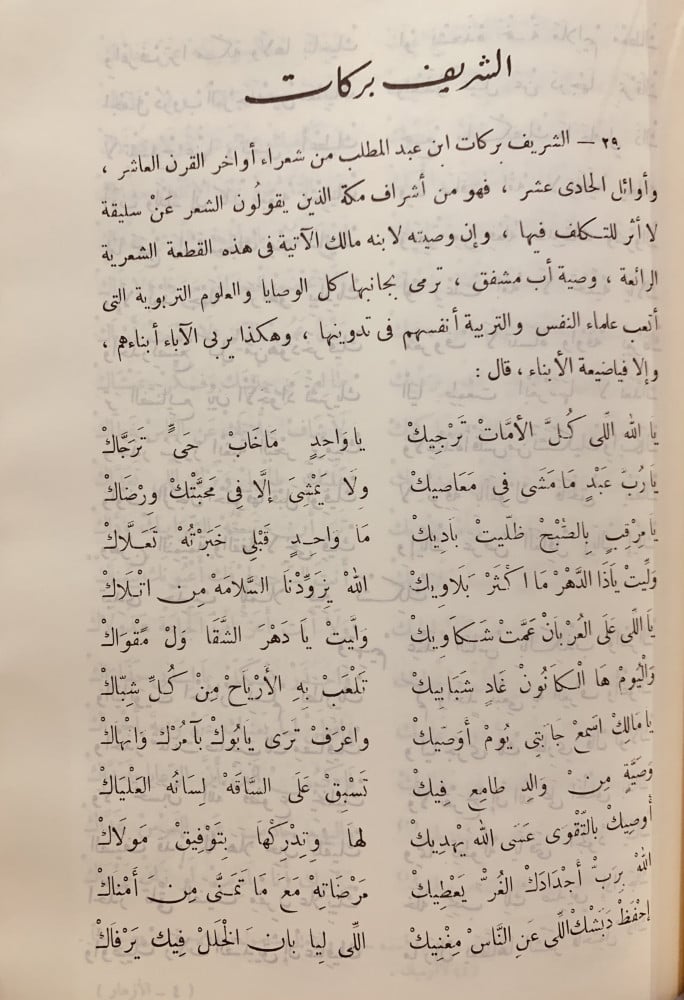 الشريف بركات
٢٩ — الشريف بركات ابن عبد المطلب من شعراء أواخر القرن العاشر ،
وأوائل الحادى عشر ، فهو من أشراف مكة الذين يقولُون الشعر عَنْ سليقة
لا أثر للتكلف فيها ، وإن وصيته لابنه مالك الآتية فى هذه القطعة الشعرية
الرائعة ، وصية أب مشفق ، ترمى بجانبها كل الوصايا والعلوم التربوية التى
أتعب علماء النفس والتربية أنفسهم فى تدوينها ، وهكذا يربى الآباء أبناءهم ،
وإلا فياضيعة الأبناء ، قال :
يا الله اللى كُلَّ الأمَّاتْ تَرْجِيكْ يا وَاحِدٍ مَاخَابْ حَىٍّ تَرَجَّاكْ
يَا رُبَّ عَبْدٍ مَا مَشَى فِى مَعَاصِيكْ وِلَا يَمْشِىَ إلَّا فِى مَحَبَّتْكْ وِرْضَاكْ
يَا مِرْقِبٍ بِالصُّبْحْ ظلَّيتْ بَادِيكْ مَا وَاحِدٍ قَبْلِى خَبَرْتُهْ تَعَلَّاكْ
وَلِّيتْ يَاذَا الدَّهْرْ مَا اكْثَرْ بَلَاوِيكْ اللهْ يِزَوِّدْنَا السَّلَامَهْ مِن اتْلَاكْ
يَا اللى عَلَى العُرْبَانْ عَمَّتْ شَكَاوِيكْ وَليتْ يَا دَهْرَ الشَّقَا وَلْ مَقْوَاكْ
وَالْيُومْ هَا الْكَانُونْ غَادٍ شَبَابِيكْ تَلْعَبْ بِهِ الأَرْيَاحْ مِنْ كُلِّ شِبَّاكْ
يا مَالِكْ اسمع جَابَتِى يُومْ أَوَصِّيكْ واعْرَفْ تَرَى يَابُوكْ بآمْرُكْ وَانْهَاكْ
وَصِيَّةٍ مِنْ وَالِدٍ طامِعٍ فِيكْ تَسْبِقْ عَلَى السَّاقَهْ لِسَانُه العَلْيَاكْ
أُوصِيكْ بالتَّقْوَى عَسَى الله يَهْدِيكْ لهَا وتِدْرِكْهَا بِتَوْفِيقْ مَولَاكْ
اللهْ بِرَبِّ أَجْدَادَكَ الغُرّْ يَعْطِيكْ مَرْضَاتِهْ مَعَ مَا تَمَنَّى مِنَ أمْنَاكْ
إحْفَظْ دَبَشْكْ اللى عَنِ النَّاسْ مِغْنِيكْ اللِّى ليا بانَ الْخَلَلْ فِيك يَرْفَاكْ